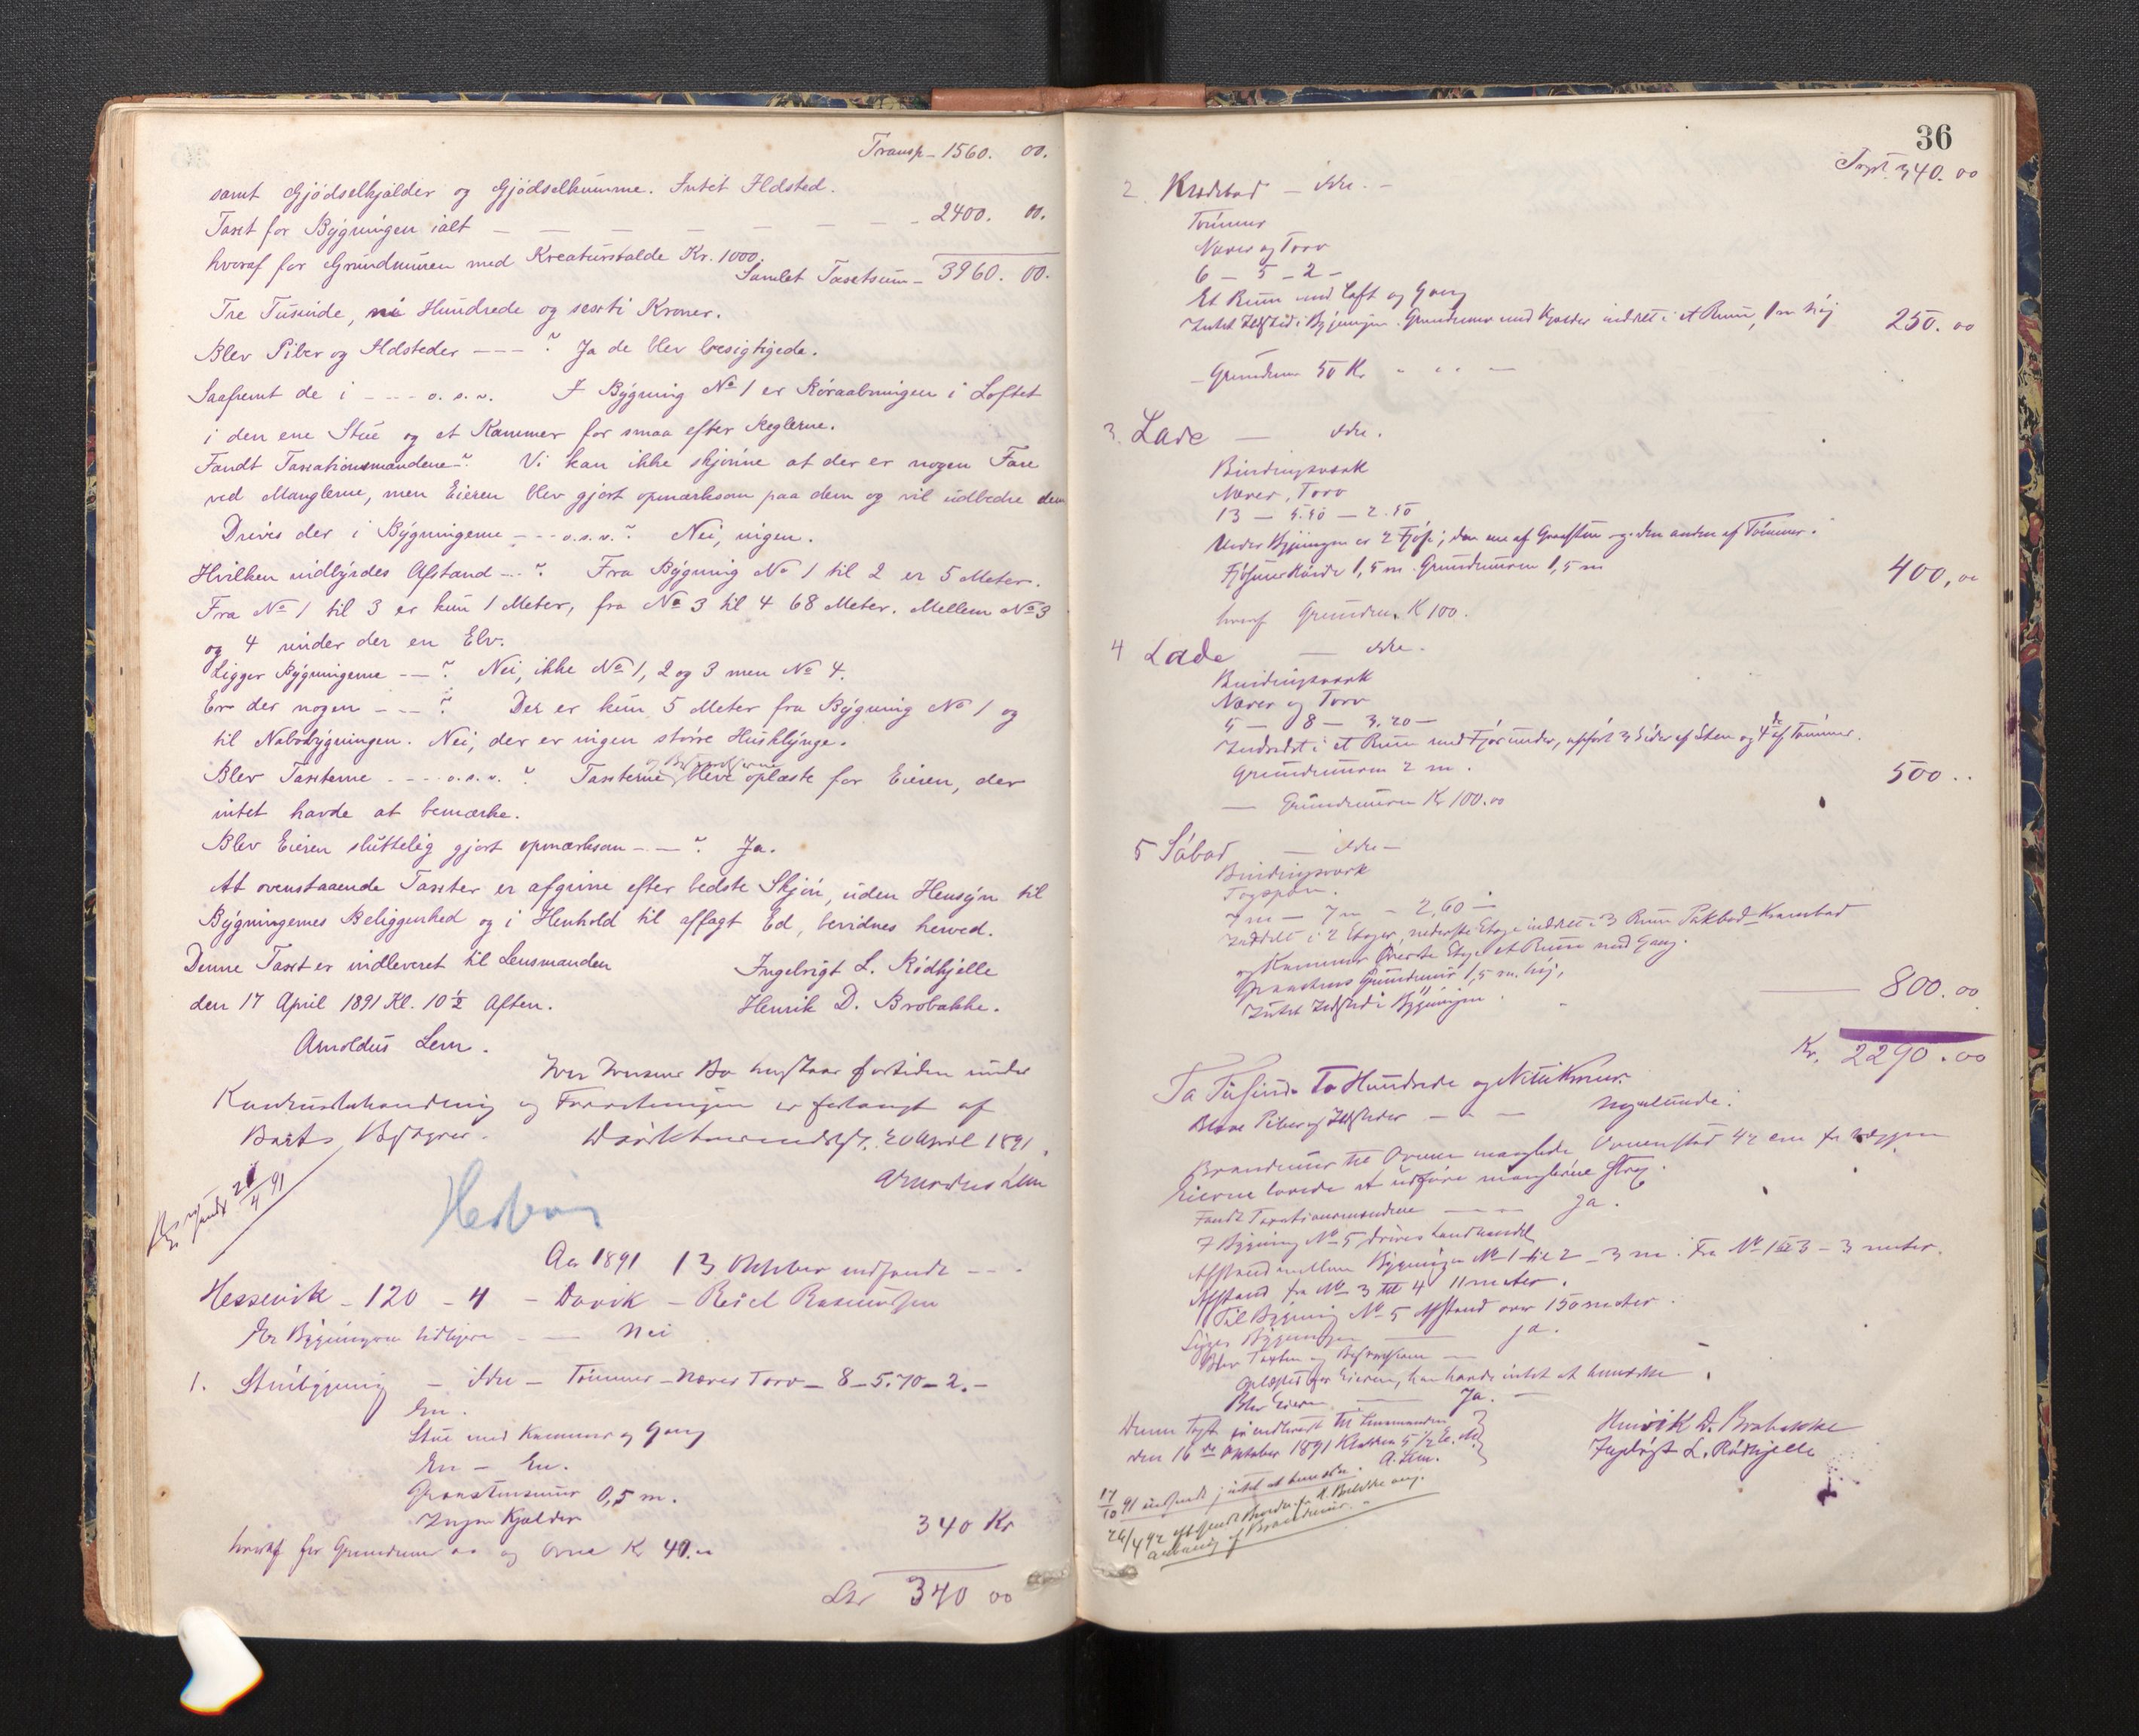 Transp - 1560. 00.
samt Gjödselkjælder og Gjödselkumme. Intet Ildsted.
Taxt for Bygningen ialt — — — — — — 2400. 00.
hvoraf for Grundmuren med Kreaturstalde Kr. 1000.
Samlet Taxtsum - 3960. 00.
Tre Tusinde, ni Hundrede og sexti Kroner.
Blev Piber og Ildsteder - - - ? Ja de blev besigtigede.
Saafremt de i - - - o. s. v. I Bygning No 1 er Röraabningen i Loftet
i den ene Stue og et Kammer for smaa efter Reglerne.
Fandt Taxationsmændene - ? Vi kan ikke skjönne at der er nogen Fare
ved Manglerne, men Eieren blev gjort opmærksom paa dem og vil udbedre dem
Drives der i Bygningerne - - - o.s.v. ? Nei, ingen.
Hvilken indbyrdes Afstand - - ? Fra Bygning No 1 til 2 er 5 Meter.
Fra No 1 til 3 er kun 1 Meter, fra No 3 til 4 68 Meter. Mellem No 3
og 4 rinder der en Elv.
Ligger Bygningerne - - ? Nei, ikke No 1, 2 og 3 men No 4.
Er der nogen - - - ? Der er kun 5 Meter fra Bygning No 1 og
til Nabobygningen. Nei, der er ingen större Husklynge.
Blev Taxterne - - - - o.s.v. ? Taxterne og Beskrivelserne bleve oplæste for Eieren, der
intet havde at bemærke.
Blev Eieren sluttelig gjort opmærksom - - - ? Ja.
At ovenstaaende Taxter er afgivne efter bedste Skjön, uden Hensyn til
Bygningernes Beliggenhed og i Henhold til aflagt Ed, bevidnes herved.
Denne Taxt er indleveret til Lensmanden Ingebrigt L. Rödhjelle
den 17 April 1891 Kl. 10 ½ Aften. Henrik D. Brobakke.
Arnoldus Lem.
fortiden under
Konkursbehandling og Forretningen er forlangt af
Boets Bestyrer. 20 April 1891.
Arnoldus Lem
21/4 91
Aar 1891 13 Oktober indfandt - - -
Hessevik - 120 - 4 - Davik - Beiel Rasmussen
Er Bygningen tidligere - — Nei
1. Stuebygning - ikke - Tömmer - Næver Torv - 8 - 5.70 - 2. -
En.
Stue med Kammer og Gang
En - En.
Graastensmur 0,5 m.
Ingen Kjælder 340 Kr
hvoraf for Grundmur og Ovne Kr 40.00
340 00
36
Trspt. 340. 00
2. Kredsbod - ikke. -
Tömmer
Næver og Torv
6 - 5 - 2 -
Et Rum med Loft og Gang
Intet Ildsted i Bygningen. Grundmur med Kjælder inddelt i et Rum, 1 m höi 250. 00
- Grundmur 50 Kr - - - —
3. Lade — ikke.
Bindingsværk
Næver, Torv
13 — 5.50 — 2.50
Under Bygningen er 2 Fjöse; den ene af Graasten og den anden af Tömmer.
Fjösene Höide 1,5 m. Grundmuren 1,5 m 400, 00
hvoraf Grundmur. K 100.
4 Lade — ikke.
Bindingsværk
Næver og Torv
5 — 8 — 3.20 —
Inddelt i et Rum med Fjös under, opfört 3 Sider af Sten og 4de af Tömmer.
Grundmuren 2 m. 500 ..
— Grundmuren Kr 100.00
5 Söbod — ikke -
Bindingsværk
Tagspån.
7 m — 7 m - 2,60 —
Inddelt i 2 Etager, nederste Etage inddelt i 3 Rum Pakbod - Krambod
og Kammer Överste Etage et Rum med Gang.
Graastens Grundmur 1,5 m. höi,
Intet Ildsted i Bygningen. — 800. 00
Kr. 2290. 00
To Tusinde To Hundrede og Nitti Kroner.
Bleve Piber og Ildsteder - - - —
Brandmur til Ovnen manglede Ovnenstod 42 cm fra væggen
Eierne lovede at udföre manglerne strax.
Fandt Taxationsmændene - — - Ja.
I Bygning No 5, drives Landhandel
Afstand mellem Bygningen No 1 til 2 - 3 m. Fra No 1 til 3 - 3 meter.
Afstand fra No 3 til 4 11 meter.
Til Bygning No 5 Afstand over 150 meter.
Ligger Bygningen — ja.
Blev Taxten og Beskrivelsen —
oplæst for Eieren, han havde intet at bemærke.
Blev Eieren — Ja. -
Denne Taxt er indleveret til Lensmanden
den 16de Oktober 1891 Klokken 5 ½ E. M. Henrik D. Brobakke
A. Lem. Ingebrigt L. Rödhjelle
17/10 91 indsendt; intet at bemærke.
26/4 92
anbring af Brandmur.